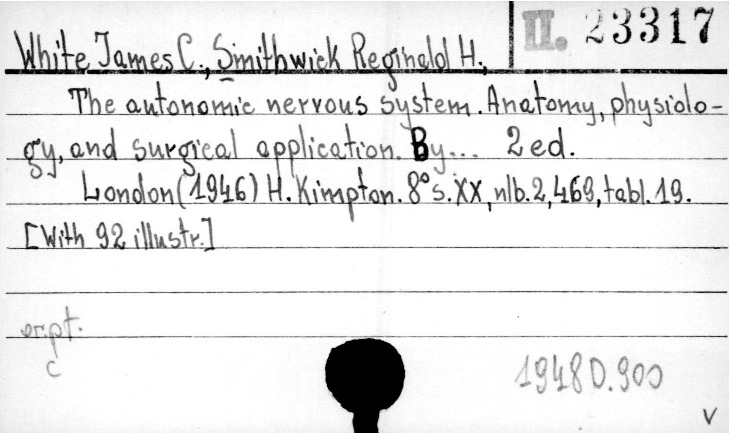 II. 23317
White James C., Smithwick Reginald H.,
The autonomic nervous system. Anatomy, physiolo-
gy, and surgical application. By... 2 ed.
London (1946) H. Kimpton. 8° s. XX, nlb. 2, 469, tabl. 19.
[With 92 illustr.]
c
1948 D. 900
v